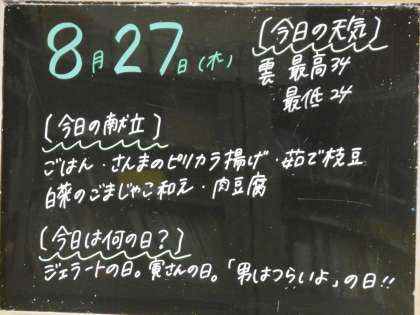 8月27日(木)
[今日の天気]
雲 最高34
最低24
[今日の献立]
ごはん・さんまのピリカラ揚げ・茹で枝豆
白菜のごまじゃこ和え・肉豆腐
[今日は何の日?]
ジェラートの日。寅さんの日。「男はつらいよ」の日!!